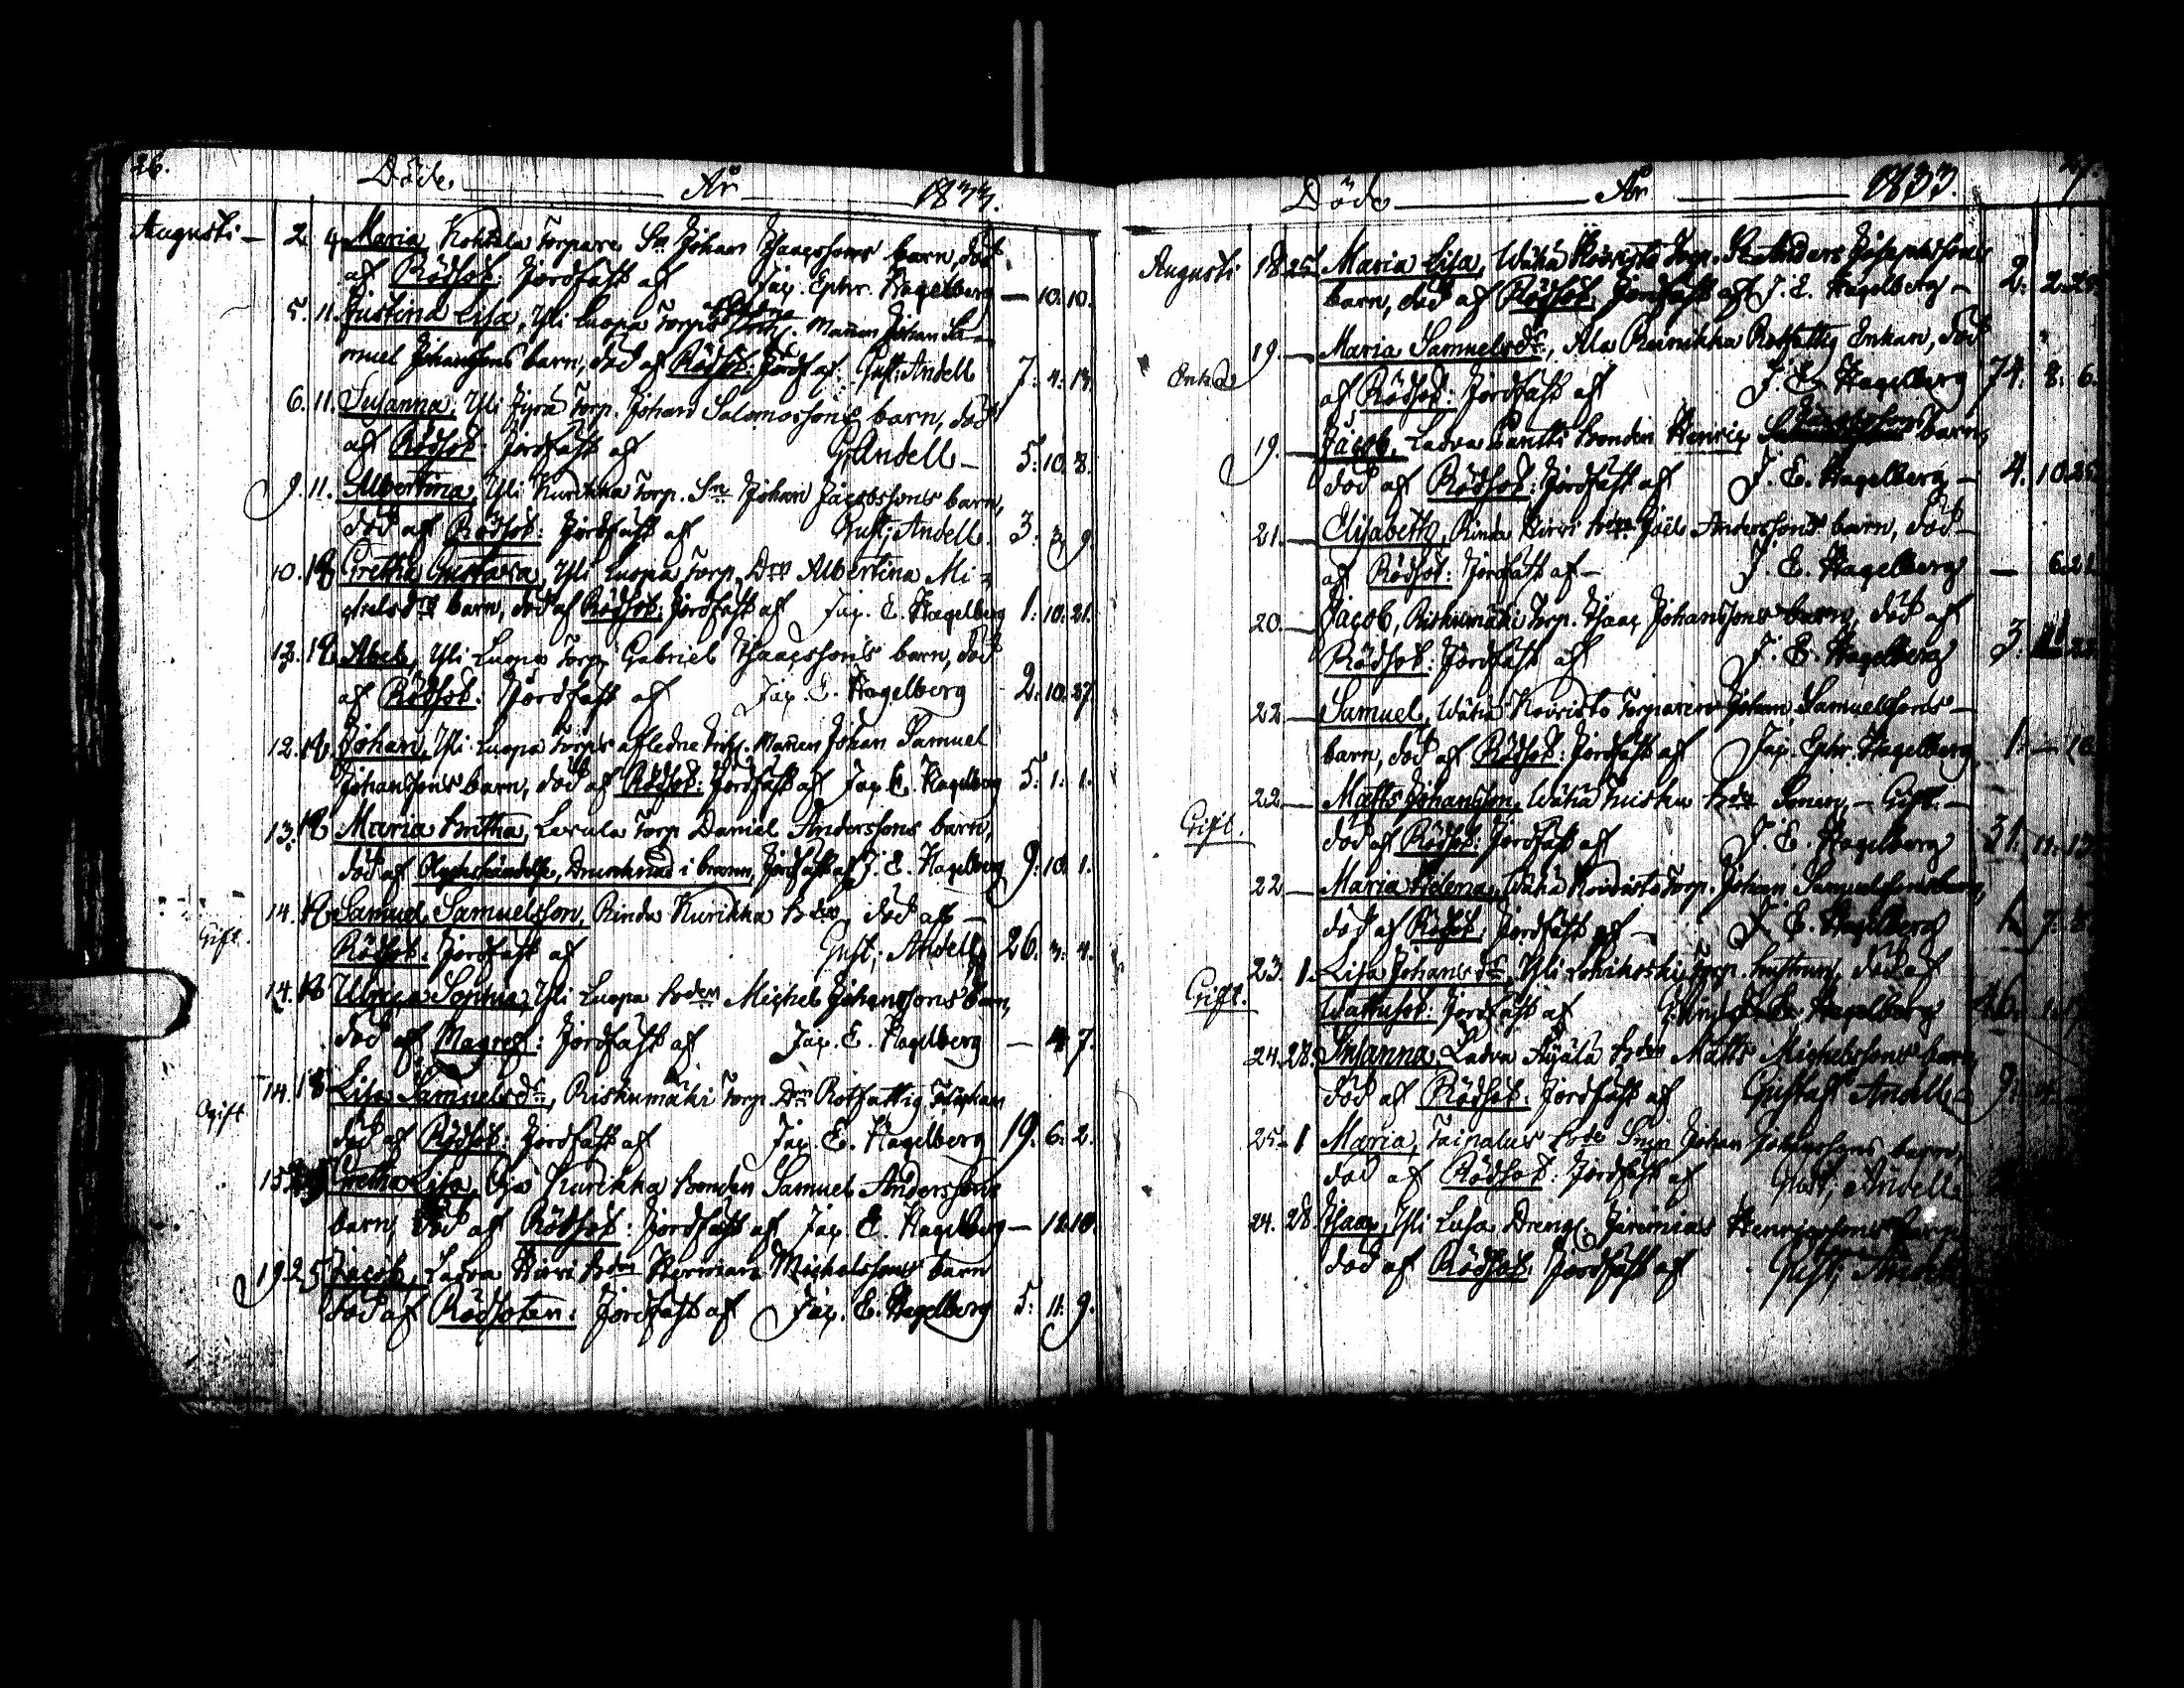 26.
Döde, År 1833.
Augusti – 2. 4. Maria, Kohtala Torpare Sn Johan Isaacssons barn, död
af Rödsot: Jordfäst af Jac. Ephr. Hagelberg — 10. 10.
5. 11. Justina Lisa, Yli Luopa Torps afledne Inhs. Mannen Johan Sa-
muel Johanssons barn, död af Rödsot: Jordf. af: Gust: Andell 7: 4: 13.
6. 11. Susanna, Yli Jyrä Torp. Johan Salomossons barn, död
af Rödsot: Jordfäst af G. Andell – 5: 10: 8.
9. 11. Albertina, Yli Kurikka Torp. Sns Johan Jacobssons barn,
död af Rödsot: Jordfäst af Gust; Andell. 3: 3. 9.
10. 18 Gretha Gustava, Yli Luopa Torp. Drs Albertina Mi-
chelsdrs barn, död af Rödsot: Jordfäst af Jac. E. Hagelberg 1: 10: 21.
12. 18 Abel, Yli Luopa Torp. Gabriel Isaacssons barn, död
af Rödsot: Jordfäst af Jac. E. Hagelberg 2: 10: 27.
12. 18. Johan, Yli Luopa Torps afledne Inhs. Mannen Johan Samuel
Johanssons barn, död af Rödsot: Jordfäst af Jac E. Hagelberg 5: 1: 1.
13. 18 Maria Britha, Lerula Torp Daniel Anderssons barn,
död af Olyckshändelse, Drunknad i brunn, Jordfäst af J. E. Hagelberg 9: 10: 1.
Gift. 14. 18 Samuel Samuelsson, Rinda Kurikka Bden, död af –
Rödsot: Jordfäst af Gust; Andell 26. 3: 4.
14. 18 Ulrica Sophia, Yli Luopa Bden Michel Johanssons barn,
död af Magref: Jordfäst af Jac. E. Hagelberg — 4. 7.
Ogift 14. 18 Lisa Samuelsdr, Riskumäki Torp. Drn Rotfattig
död af Rödsot: Jordfäst af Jac. E. Hagelberg 19. 6: 2.
15 Gretha Lisa, Oja Kurikka Bonden Samuel Anderssons
barn, död af Rödsot: Jordfäst af Jac E. Hagelberg –
19. 25 Jacob, Ladva Hirvi Bden Herman Michelssons barn
död af Rödsoten: Jordfäst af Jac. E. Hagelberg 5: 11: 9.
27.
Döde År 1833.
Augusti 18 25 Maria Lisa, Wähä Koivisto Torp. Anders Josephssons
barn, död af Rödsot: Jordfäst af J. E. Hagelberg – 2: 2:
Enka 19. — Maria Samuelsdr, Ala Runikka Rotfattig Enkan, död
af Rödsot: Jordfäst af J. E. Hagelberg 74: 8: 6.
19. — Jacob, Ladva Bonden Henric barn,
död af Rödsot: Jordfäst af J. E. Hagelberg – 4. 10
21. — Elisabeth, Rinda Hirvi Joëls Anderssons barn, död –
af Rödsot: Jordfäst af – J. E. Hagelberg —
20. — Jacob, Riskumäki Torp. Isaac Johanssons barn, död af
Rödsot: Jordfäst af J. E. Hagelberg 3:
22 — Samuel, Wähä Koivisto Torparen Johan Samuelssons –
barn, död af Rödsot: Jordfäst af Jac. Ephr. Hagelberg 1: —
Gift. 22 — Matts Johansson, Wähä Bde Sonen, – Gift. –
död af Rödsot: Jordfäst af J. E. Hagelberg 31: 11:
22 — Maria Helena, Wähä Koivisto Torp. Johan Samuelssons barn,
död af Rödsot: Jordfäst af – J. E. Hagelberg 7: 8
Gift. 23. 1. Lisa Johansdr, Yli Torp. hustrun, död af
Wattusot: Jordfäst af Hagelberg
24. 28. Susanna, Ladva Äyälä Bden Matts Michelssons barn,
död af Rödsot: Jordfäst af Gustaf Andell – 9:
25 – 1 Maria, Tainalus Bde Sonen Johan Johanssons barn,
död af Rödsot: Jordfäst af Gust; Andell
24. 28 Isaac, Yli Luoa Drengs. Jeremias Henricssons barn
död af Rödsot: Jordfäst af Gust; Andell